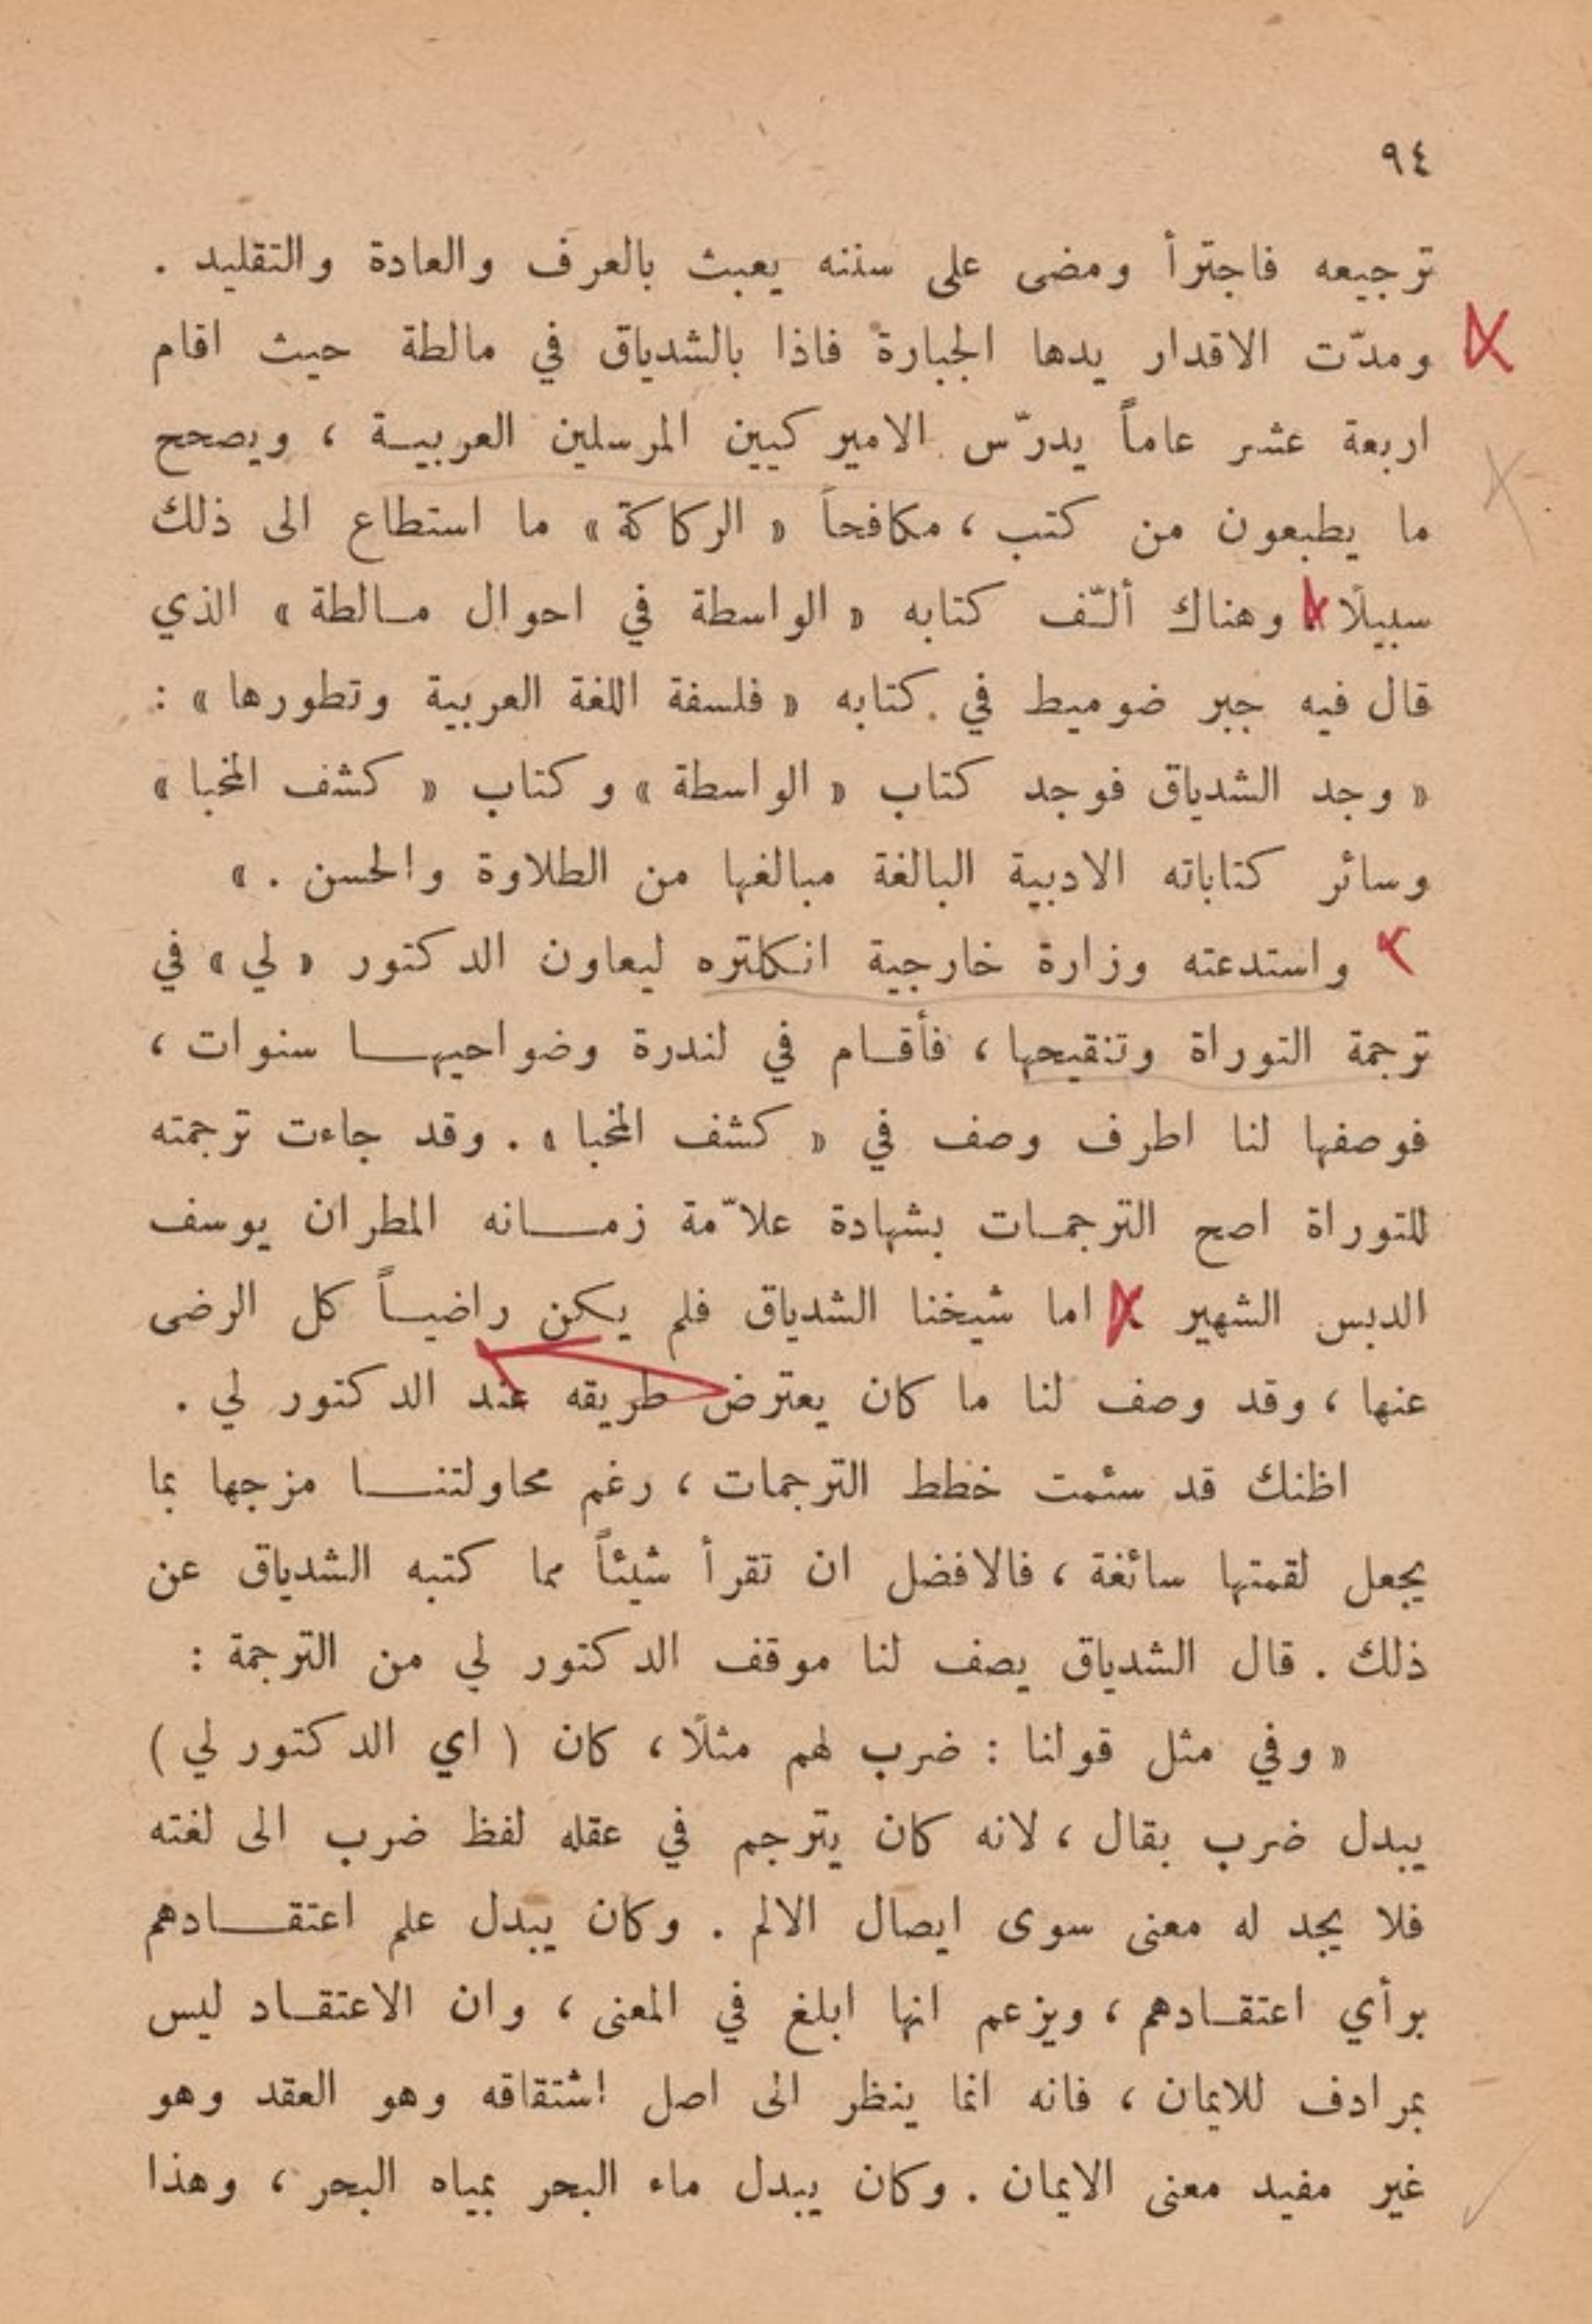 ٩٤
ترجيعه فاجترأ ومضى على سننه يعبث بالعرف والعادة والتقليد .
ومدّت الاقدار يدها الجبارة فاذا بالشدياق في مالطة حيث اقام
اربعة عشر عاماً يدرّس الاميركيين المرسلين العربيـة ، ويصحح
ما يطبعون من كتب ، مكافحاً « الركاكة » ما استطاع الى ذلك
سبيلًا وهناك ألـّف كتابه « الواسطة في احوال مـالطة » الذي
قال فيه جبر ضوميط في كتابه « فلسفة اللغة العربية وتطورها » :
« وجد الشدياق فوجد كتاب « الواسطة » وكتاب « كشف المخبا »
وسائر كتاباته الادبية البالغة مبالغها من الطلاوة والحسن . »
واستدعته وزارة خارجية انكلتره ليعاون الدكتور « لي » في
ترجمة التوراة وتنقيحها ، فأقـام في لندرة وضواحيهـا سنوات ،
فوصفها لنا اطرف وصف في « كشف المخبا » . وقد جاءت ترجمته
للتوراة اصح الترجمـات بشهادة علاّمة زمـانه المطران يوسف
الدبس الشهير اما شيخنا الشدياق فلم يكن راضيـاً كل الرضى
عنها ، وقد وصف لنا ما كان يعترض طريقه عند الدكتور لي .
اظنك قد سئمت خطط الترجمات ، رغم محاولتنـا مزجها بما
يجعل لقمتها سائغة ، فالافضل ان تقرأ شيئاً مما كتبه الشدياق عن
ذلك . قال الشدياق يصف لنا موقف الدكتور لي من الترجمة :
« وفي مثل قولنا : ضرب لهم مثلًا ، كان ( اي الدكتور لي )
يبدل ضرب بقال ، لانه كان يترجم في عقله لفظ ضرب الى لغته
فلا يجد له معنى سوى ايصال الالم . وكان يبدل علم اعتقـادهم
برأي اعتقـادهم ، ويزعم انها ابلغ في المعنى ، وان الاعتقـاد ليس
بمرادف للايمان ، فانه انما ينظر الى اصل اشتقاقه وهو العقد وهو
غير مفيد معنى الايمان . وكان يبدل ماء البحر بمياه البحر ، وهذا